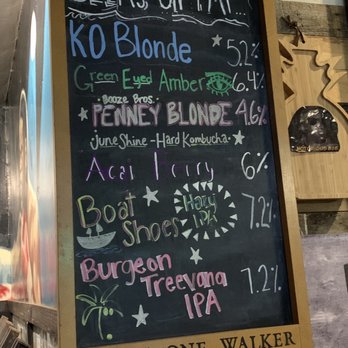 KO Blonde 5.2%
Green Eyed Amber 6.4%
Booze Bros.
PENNEY BLONDE 4.6%
JuneShine-Hard Kombucha
Acai 6%
Boat Shoes Hazy IPA 7.2%
Burgeon
Treevana 7.2%
IPA
ONE WALKER